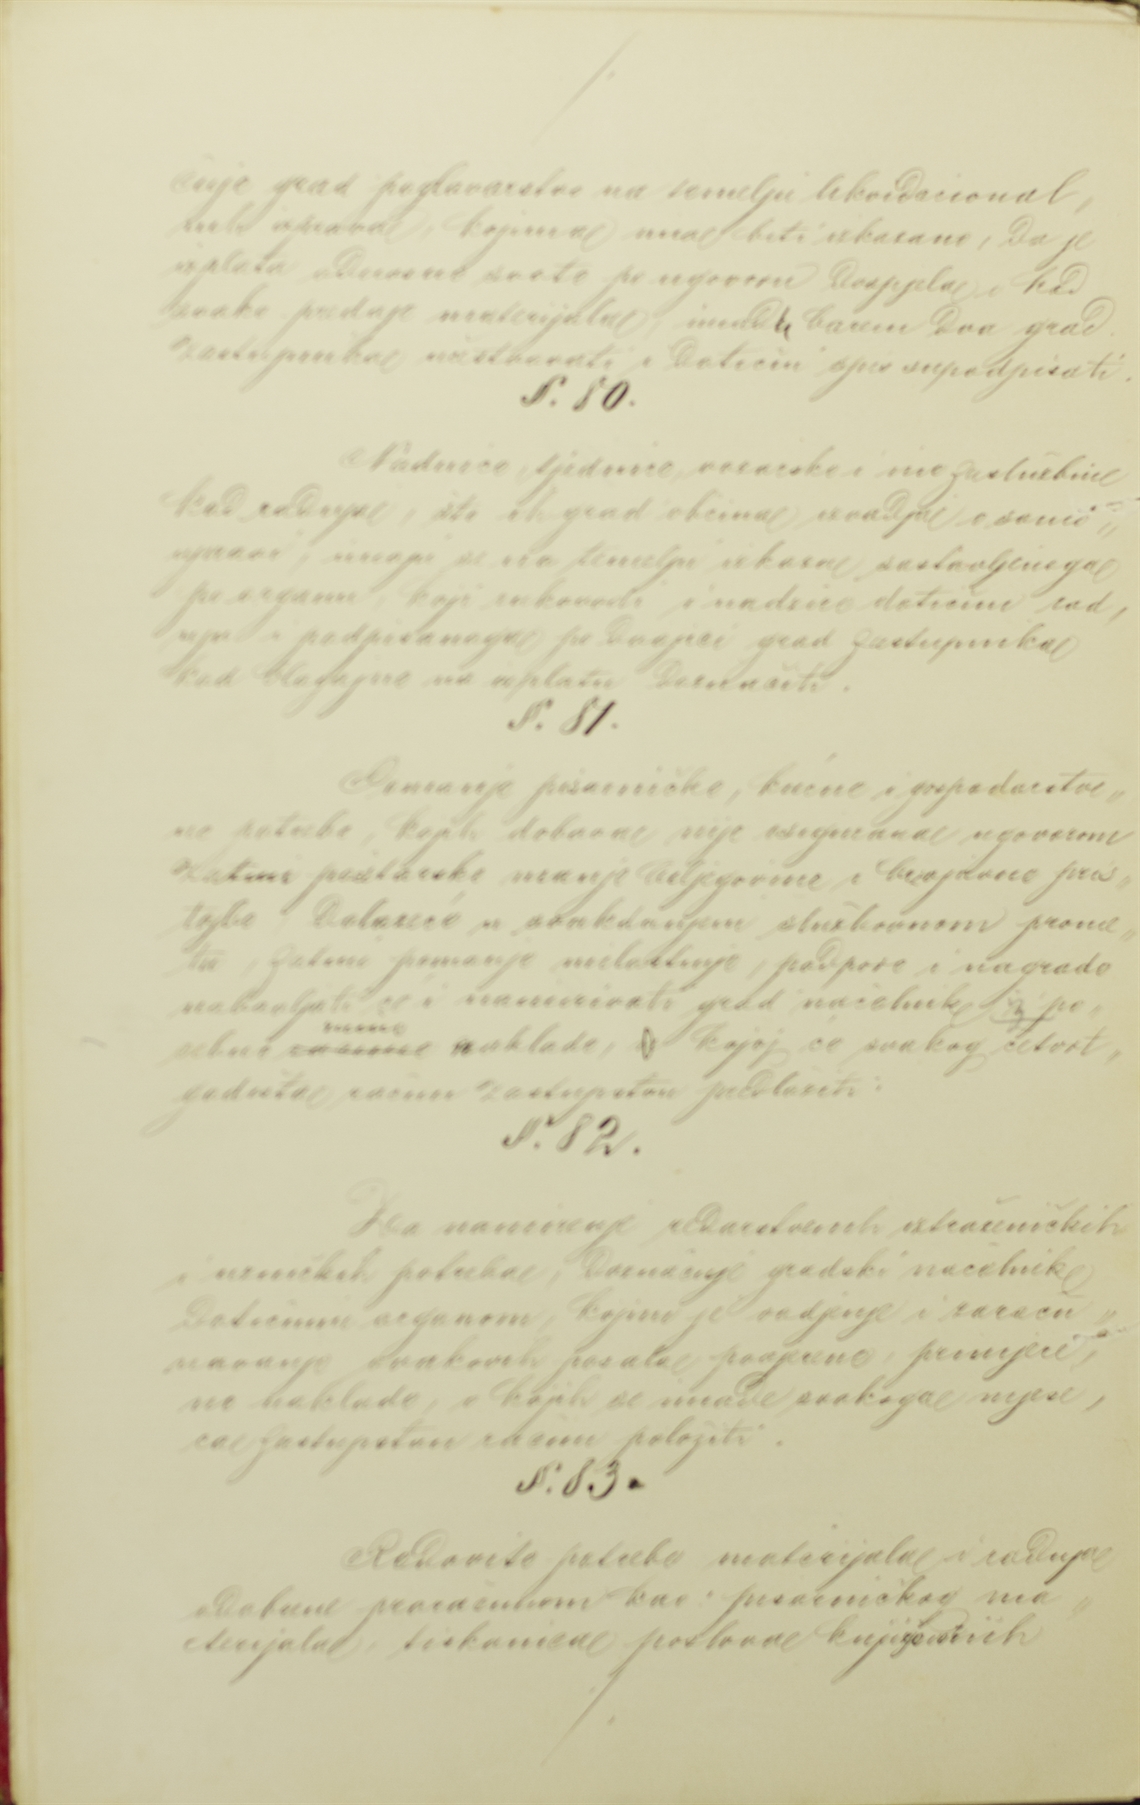 čuje grad poglavarstvo na temelju likvidacional,
nih izprava, kojima ima biti izkazano, da je
izplata odnosne svote po ugovoru dospjela, kod
svake predaje materijala, imadu barem dva grad.
zastupnika učestvovati i dotični spis supodpisati.
§. 80.
Nadnice, tjednice, vozarske i ine zaslužbine
kod radnja, što ih grad obćina izvadja u samo„
upravi, imaju se na temelju izkaza sastavljenoga
po organu, koji rukovodi i nadzire dotičnu rad,
nju i podpisanoga po dvojici grad zastupnika
kod blagajne na izplatu doznačiti.
§. 81.
Osmanje pisarničke, kućne i gospodarstve„
ne potrebe, kojih dobava nije osigurana ugovorom
zatim poštarske manje biljegovine i brzojavne pris„
tojbe dolazeće u svakdanjem službovnom prome„
tu, zatim pomanje milostinje, podpore i nagrade
nabavljati će i namirivati grad načelnik iz po„
sebne naklade, o kojoj će svakog četvrt„
godišta račun zastupstvu predložiti.
§. 82.
Za namirenje redarstvenih iztražničkih
i uzničkih potreba, doznačuje gradski načelnik
dotičnim organom, kojim je vodjenje i zaraču„
navanje ovakovih posala povjereno, primjere,
ne naklade, o kojih se imade svakoga mjese,
ca zastupstvu račun položiti.
§. 83.
Redovite potrebe materijala i radnja
odobrene proračunom kao: pisarničkog ma„
terijala, tiskanica poslova knjigovežnih